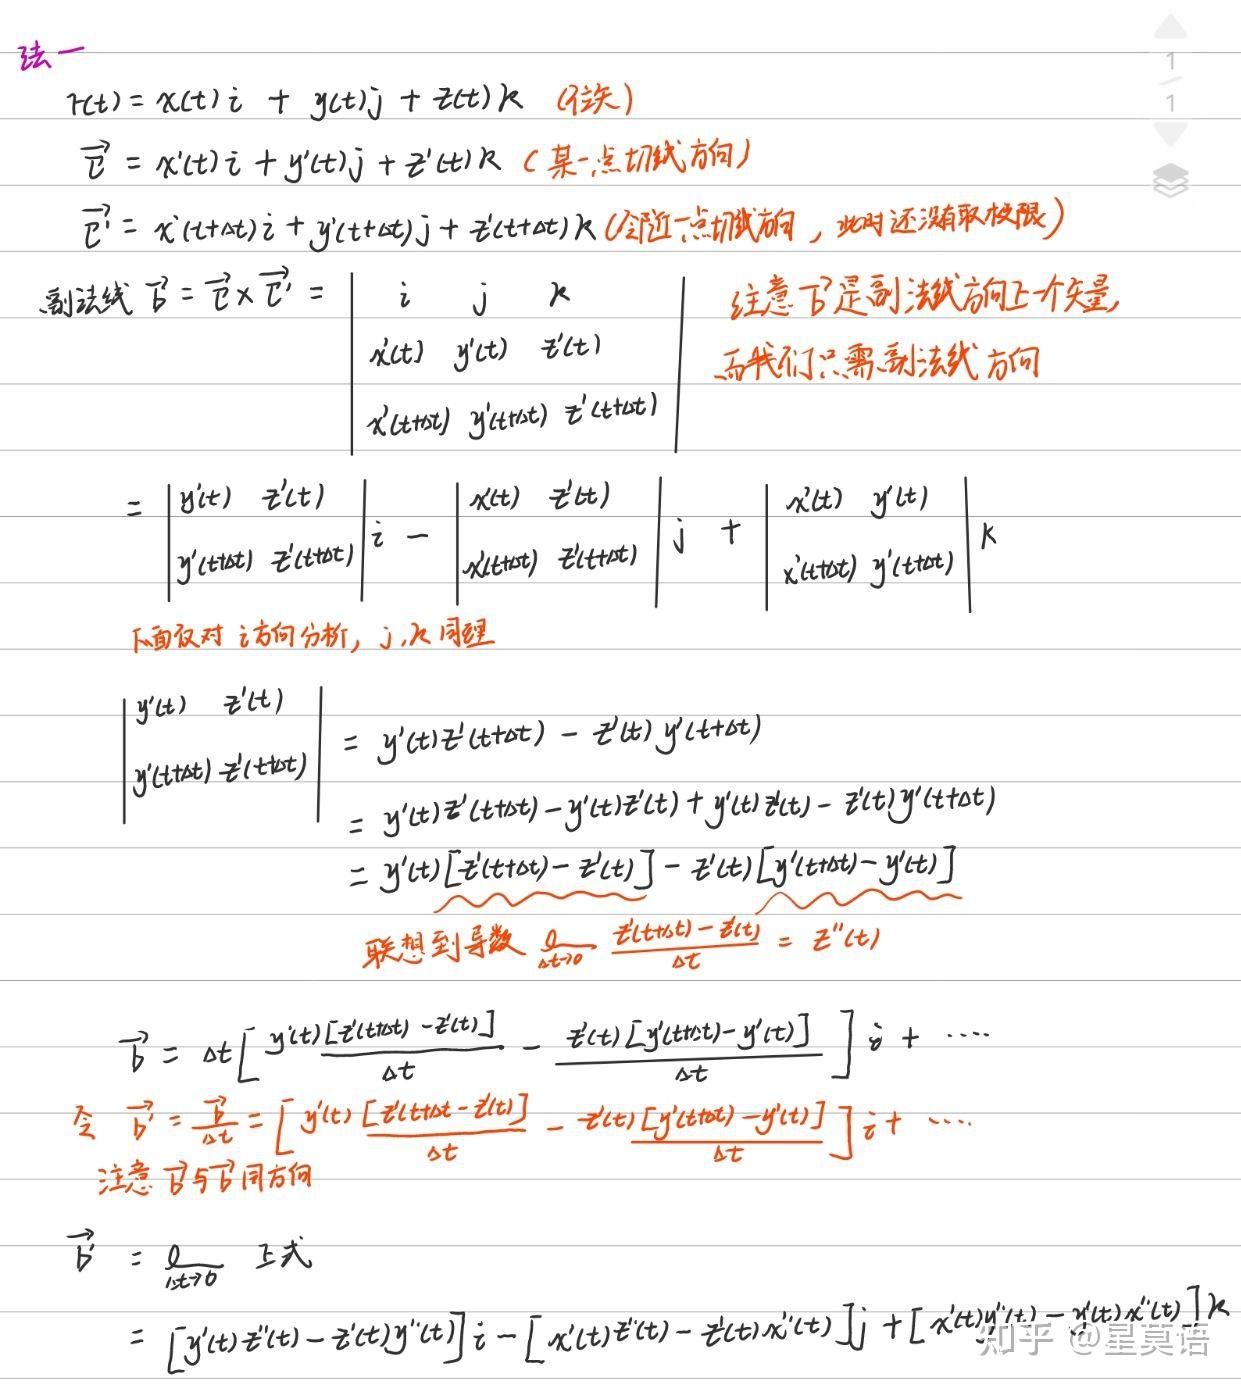 法一
1
1
r(t) = x(t)i + y(t)j + z(t)k (位矢)
τ⃗ = x'(t)i + y'(t)j + z'(t)k (某一点切线方向)
τ⃗' = x'(t+Δt)i + y'(t+Δt)j + z'(t+Δt)k (邻近一点切线方向，此时还没有取极限)
副法线 b⃗ = τ⃗ × τ⃗' = | i j k |
| x'(t) y'(t) z'(t) |
| x'(t+Δt) y'(t+Δt) z'(t+Δt) |
注意 b⃗ 是副法线方向上一个矢量,
而我们只需副法线方向
= | y'(t) z'(t) | i − | x'(t) z'(t) | j + | x'(t) y'(t) | k
| y'(t+Δt) z'(t+Δt) | | x'(t+Δt) z'(t+Δt) | | x'(t+Δt) y'(t+Δt) |
下面仅对 i方向分析, j,k 同理
| y'(t) z'(t) |
| y'(t+Δt) z'(t+Δt) | = y'(t)z'(t+Δt) − z'(t)y'(t+Δt)
= y'(t)z'(t+Δt) − y'(t)z'(t) + y'(t)z'(t) − z'(t)y'(t+Δt)
= y'(t)[z'(t+Δt) − z'(t)] − z'(t)[y'(t+Δt) − y'(t)]
联想到导数 l_{Δt→0} (z'(t+Δt) − z'(t))/Δt = z''(t)
b⃗ = Δt[ y'(t)[z'(t+Δt) − z'(t)]/Δt − z'(t)[y'(t+Δt) − y'(t)]/Δt ] i + ····
令 b⃗' = b⃗/Δt = [ y'(t)[z'(t+Δt − z'(t)]/Δt − z'(t)[y'(t+Δt) − y'(t)]/Δt ] i + ····
注意 b⃗'与b⃗ 同方向
b⃗' = l_{Δt→0} 上式
= [y'(t)z''(t) − z'(t)y''(t)]i − [x'(t)z''(t) − z'(t)x''(t)]j + [x'(t)y''(t) − y'(t)x''(t)]k
知乎 @星莫语